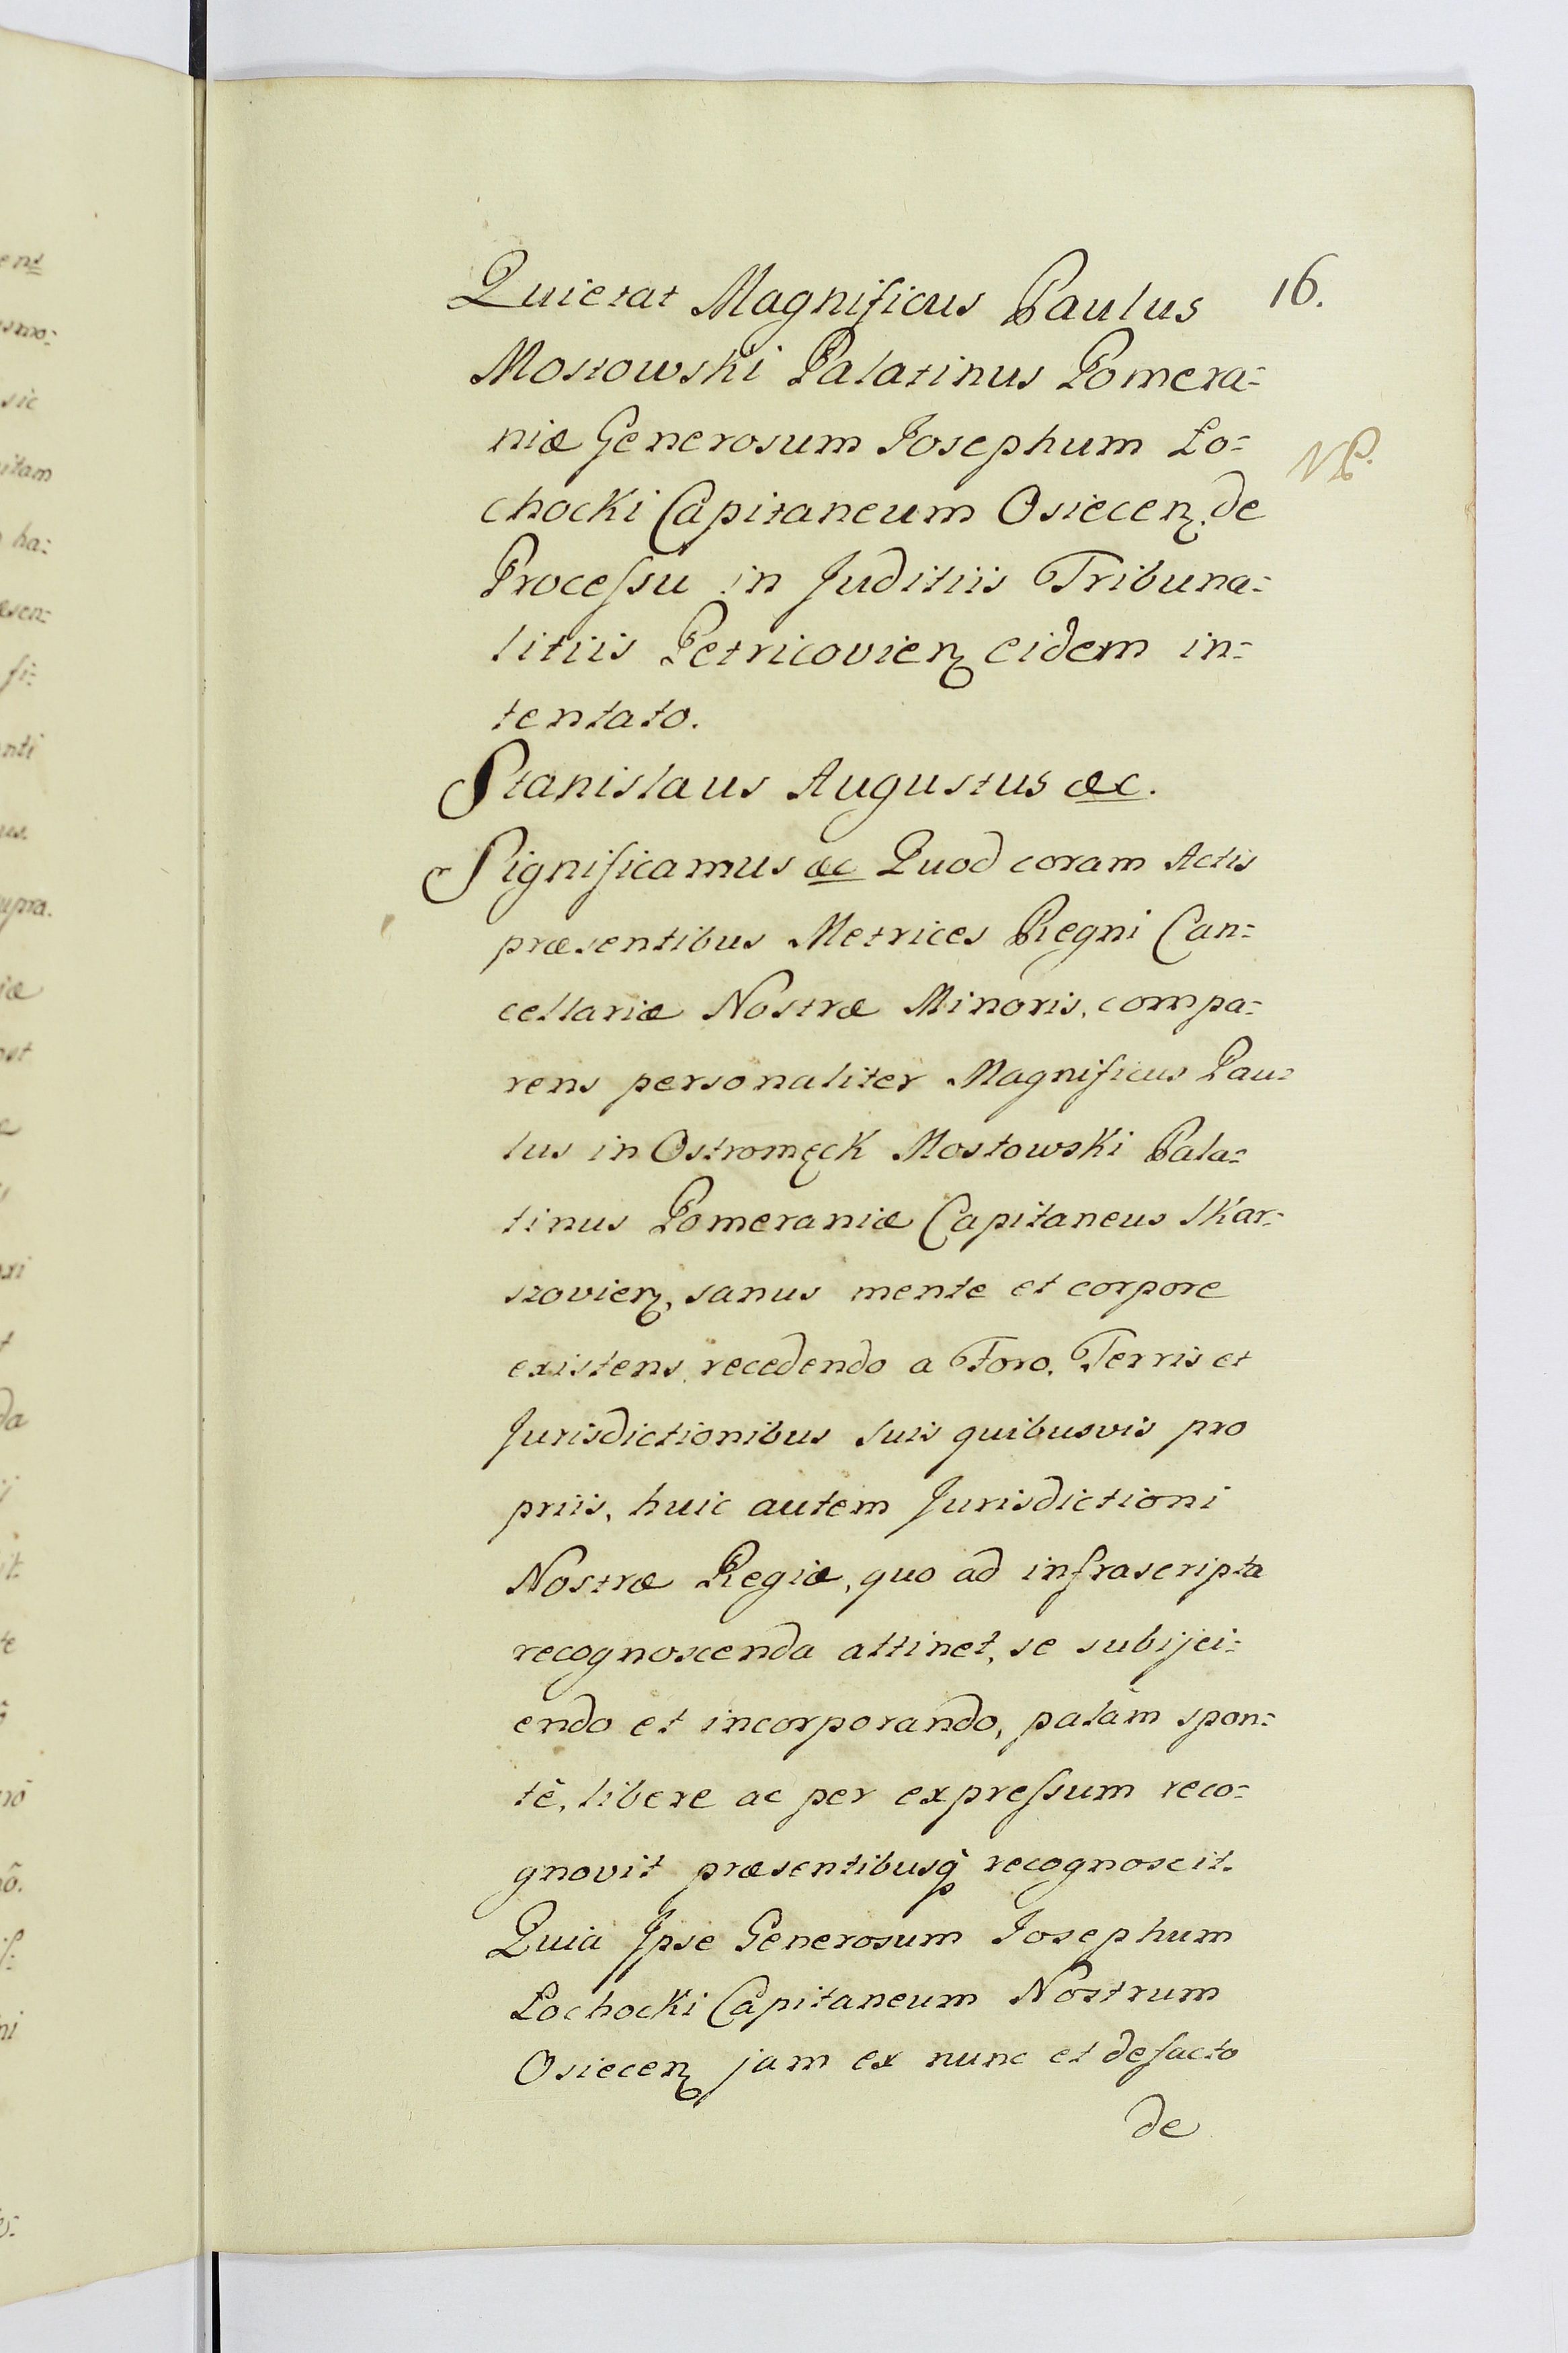 Quietat Magnificus Paulus 16.
Mostowski Palatinus Pomera=
niæ Generosum Josephum Lo= NP.
chocki Capitaneum Osiecen. de
Processu in Juditiis Tribuna=
litiis Petricovien eidem in=
tentato.
Stanislaus Augustus &c.
Significamus &c Quod coram Actis
præsentibus Metrices Regni Can=
cellariæ Nostræ Minoris, compa=
rens personaliter Magnificus Pau=
lus in Ostromęck Mostowski Pala=
tinus Pomeraniæ Capitaneus Skar=
szovien, sanus mente et corpore
existens, recedendo a Foro, Terris et
Jurisdictionibus suis quibusvis pro
priis, huic autem Jurisdictioni
Nostræ Regiæ, quo ad infrascripta
recognoscenda attinet, se subijci=
endo et incorporando, palàm spon=
tè, libere ac per expressum reco=
gnovit præsentibusq̀ recognoscit.
Quia Ipse Generosum Josephum
Lochocki Capitaneum Nostrum
Osiecen jam ex nunc et defacto
de